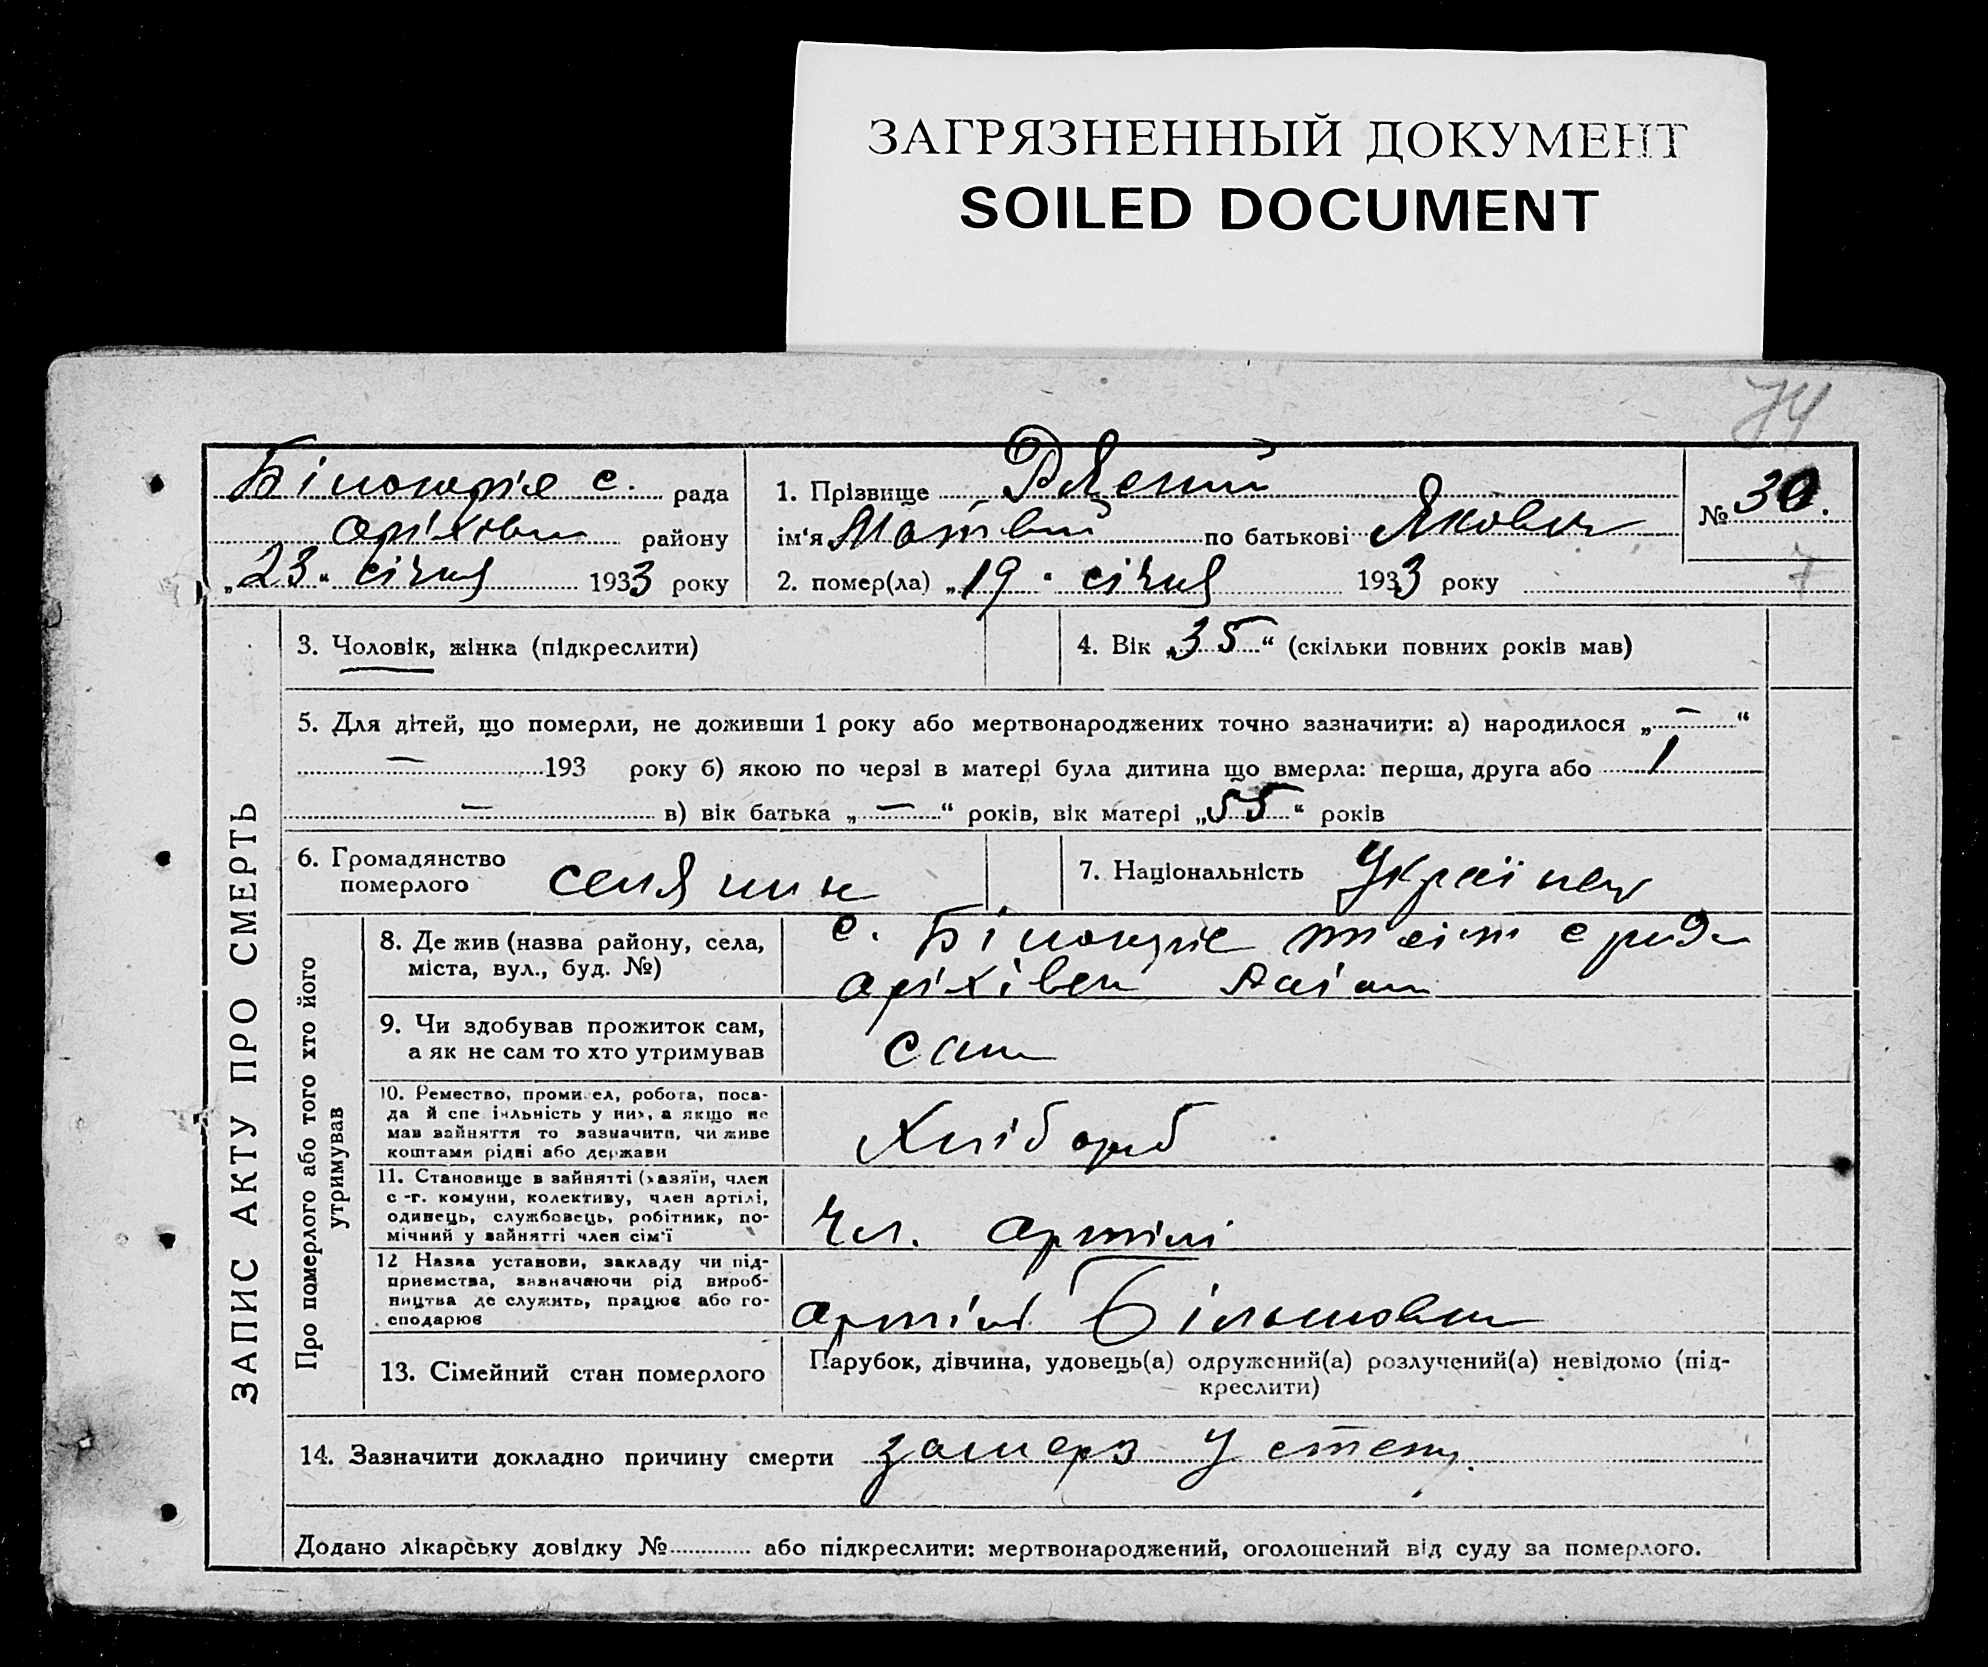 ЗАГРЯЗНЕННЫЙ ДОКУМЕНТ
SOILED DOCUMENT
74
с. рада
району
„23“ січня 1933 року
1. Прізвище
ім'я Матвій по батькові Якович
2. помер(ла) „19“ січня 1933 року
№ 30.
7
ЗАПИС АКТУ ПРО СМЕРТЬ
3. Чоловік, жінка (підкреслити)
4. Вік „35“ (скільки повних років мав)
5. Для дітей, що померли, не доживши 1 року або мертвонароджених точно зазначити: а) народилося „—“
— 193 року б) якою по черзі в матері була дитина що вмерла: перша, друга або 1
— в) вік батька „—“ років, вік матері „55“ років
6. Громадянство
померлого селянин
7. Національність Українец
Про померлого або того хто його
утримував
8. Де жив (назва району, села,
міста, вул., буд. №)
с.
9. Чи здобував прожиток сам,
а як не сам то хто утримував
сам
10. Ремество, промисел, робота, поса-
да й спеціяльність у них, а якщо не
мав зайняття то зазначити, чи живе
коштами рідні або держави
Хлібороб
11. Становище в зайнятті (хазяїн, член
с.-г. комуни, колективу, член артілі,
одинець, службовець, робітник, по-
мічний у зайнятті член сім'ї
Чл. артілі
12 Назва установи, закладу чи під-
приємства, зазначаючи рід вироб-
ництва де служить, працює або го-
сподарює
артілі
13. Сімейний стан померлого
Парубок, дівчина, удовець(а) одружений(а) розлучений(а) невідомо (під-
креслити)
14. Зазначити докладно причину смерти замерз у степу.
Додано лікарську довідку № або підкреслити: мертвонароджений, оголошений від суду за померлого.